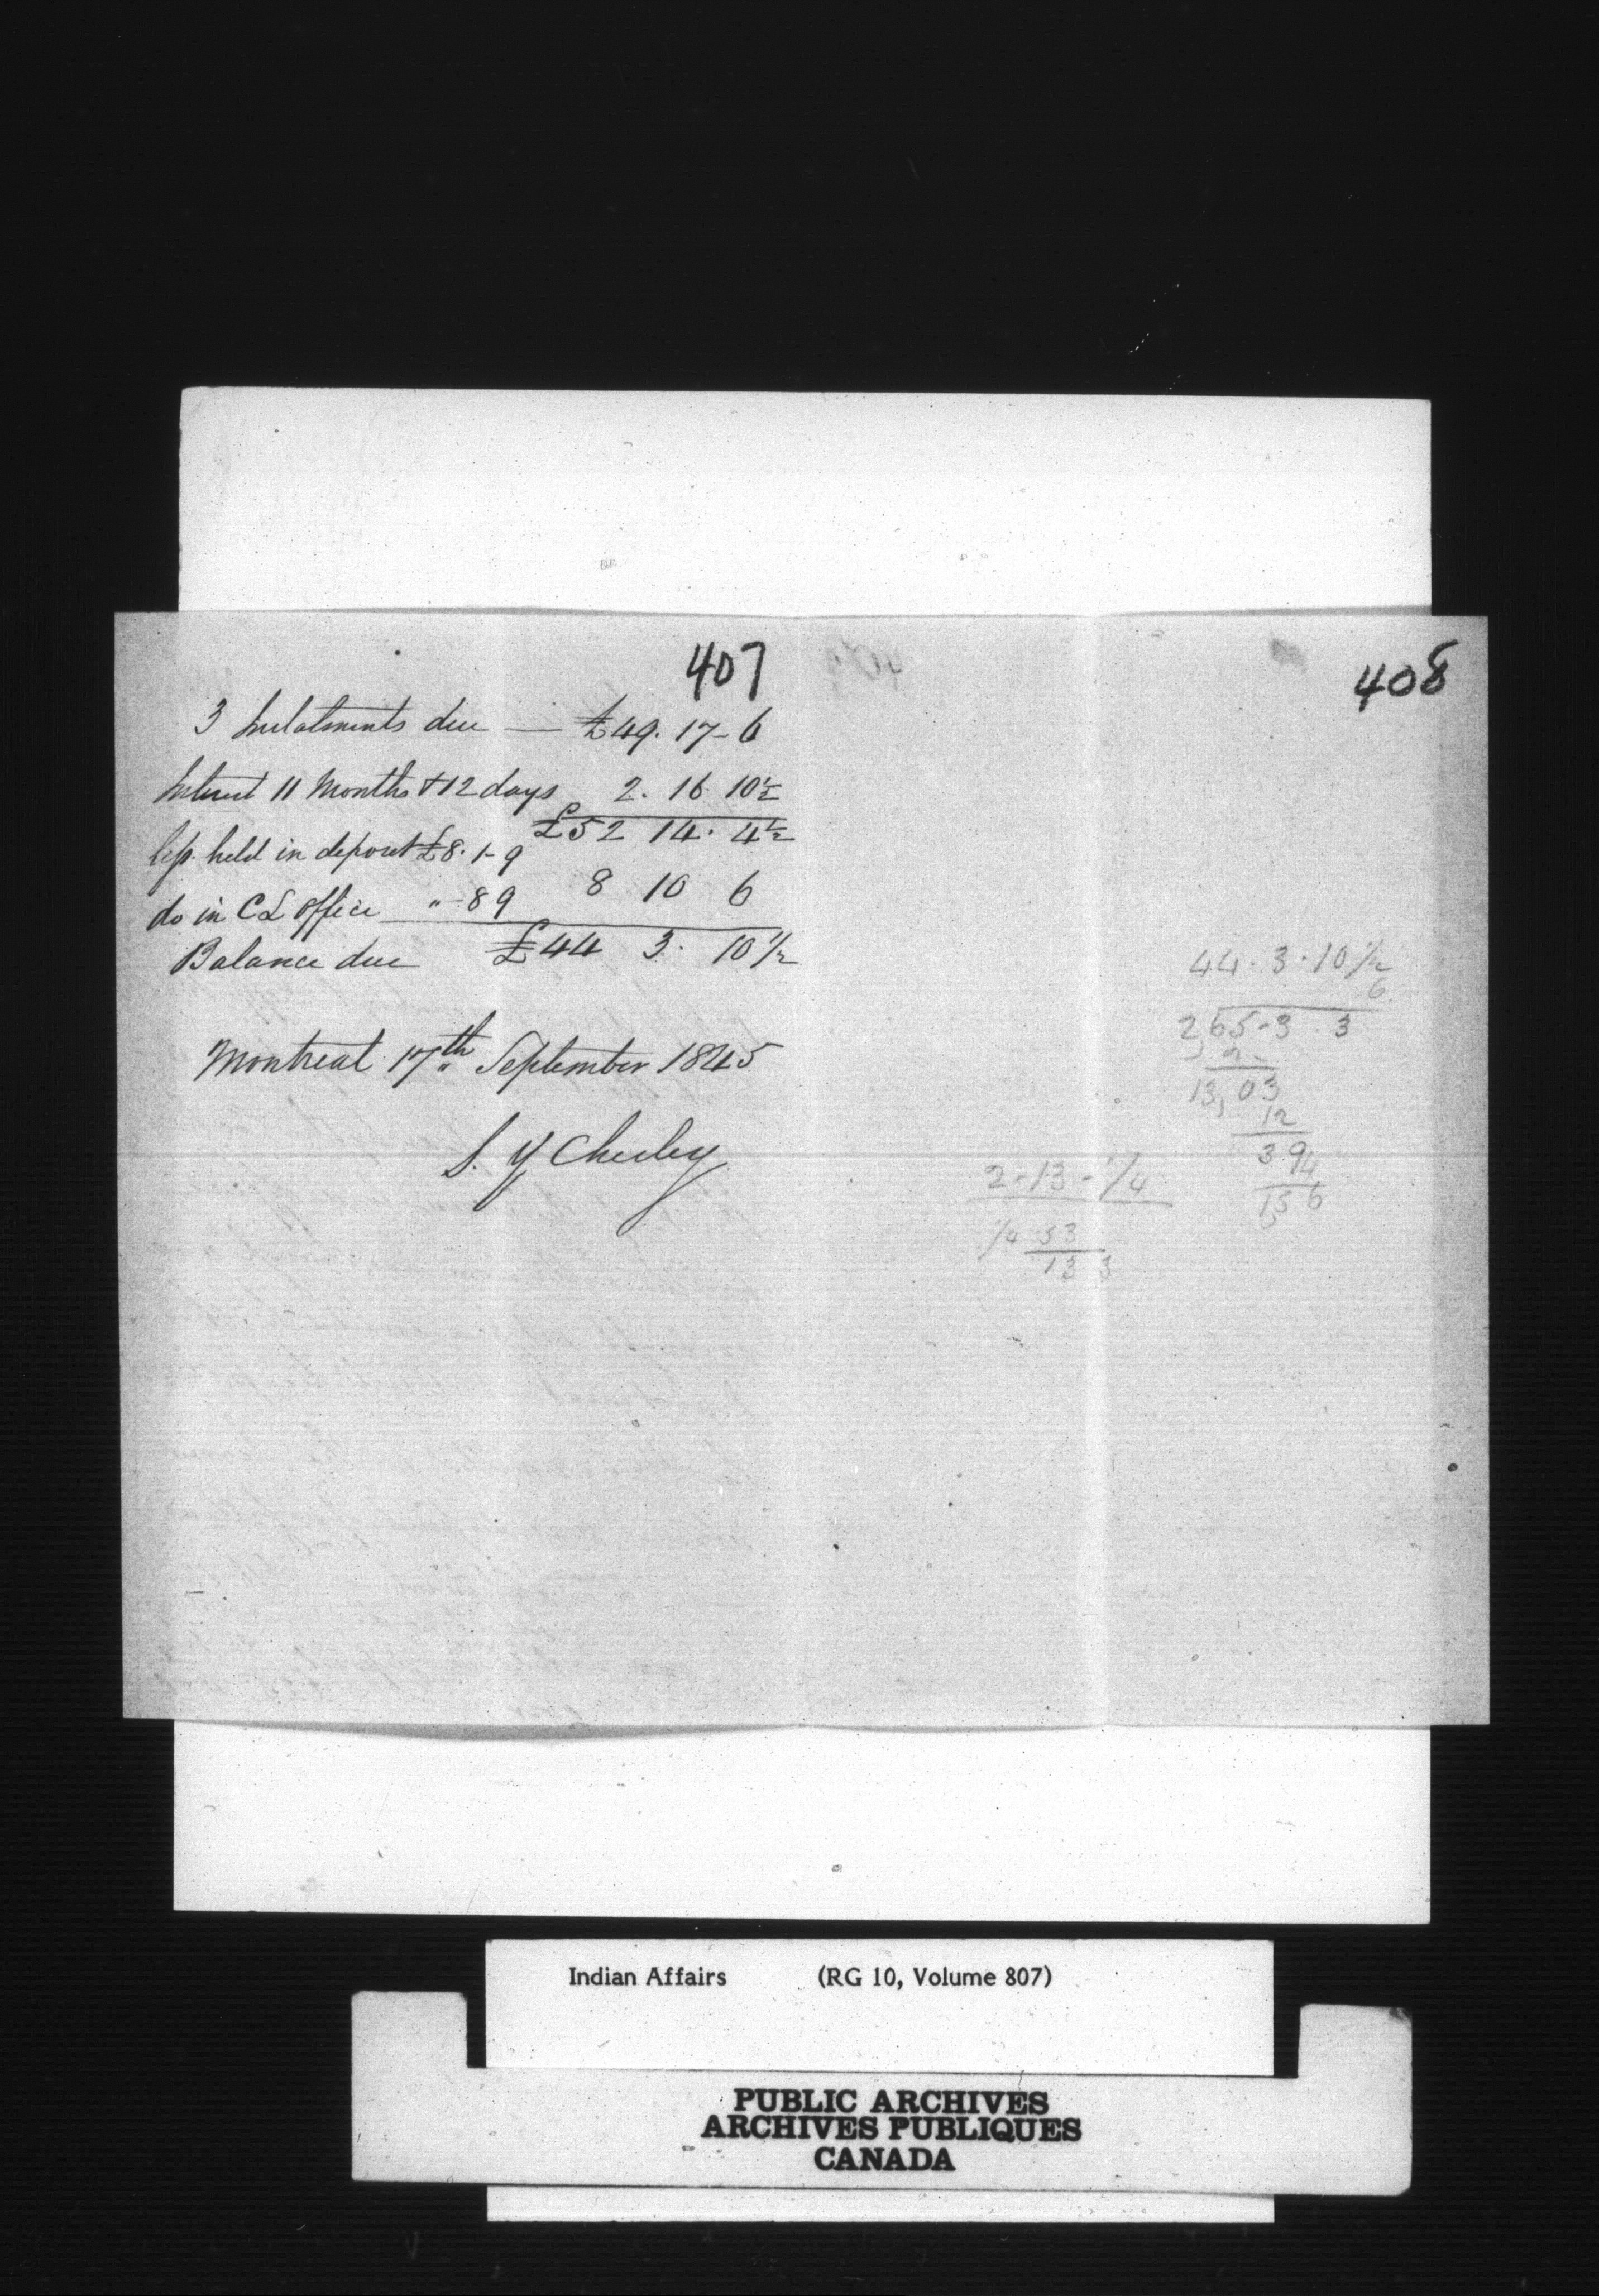 407
3 Instalments due — £49. 17-6
Interest 11 Months & 12 days 2. 16 10½
£52 14. 4½
less held in deposit £8. 1-9
do in CL office " -8 9 8 10 6
Balance due £44 3. 10½
Montreal 17th September 1845
S. Y Chesley
408
44. 3. 10½
6
265-3 3
2
13,03
12
39
4
156
2-13-¼
¼ 53
13 3
Indian Affairs (RG 10, Volume 807)
PUBLIC ARCHIVES
ARCHIVES PUBLIQUES
CANADA